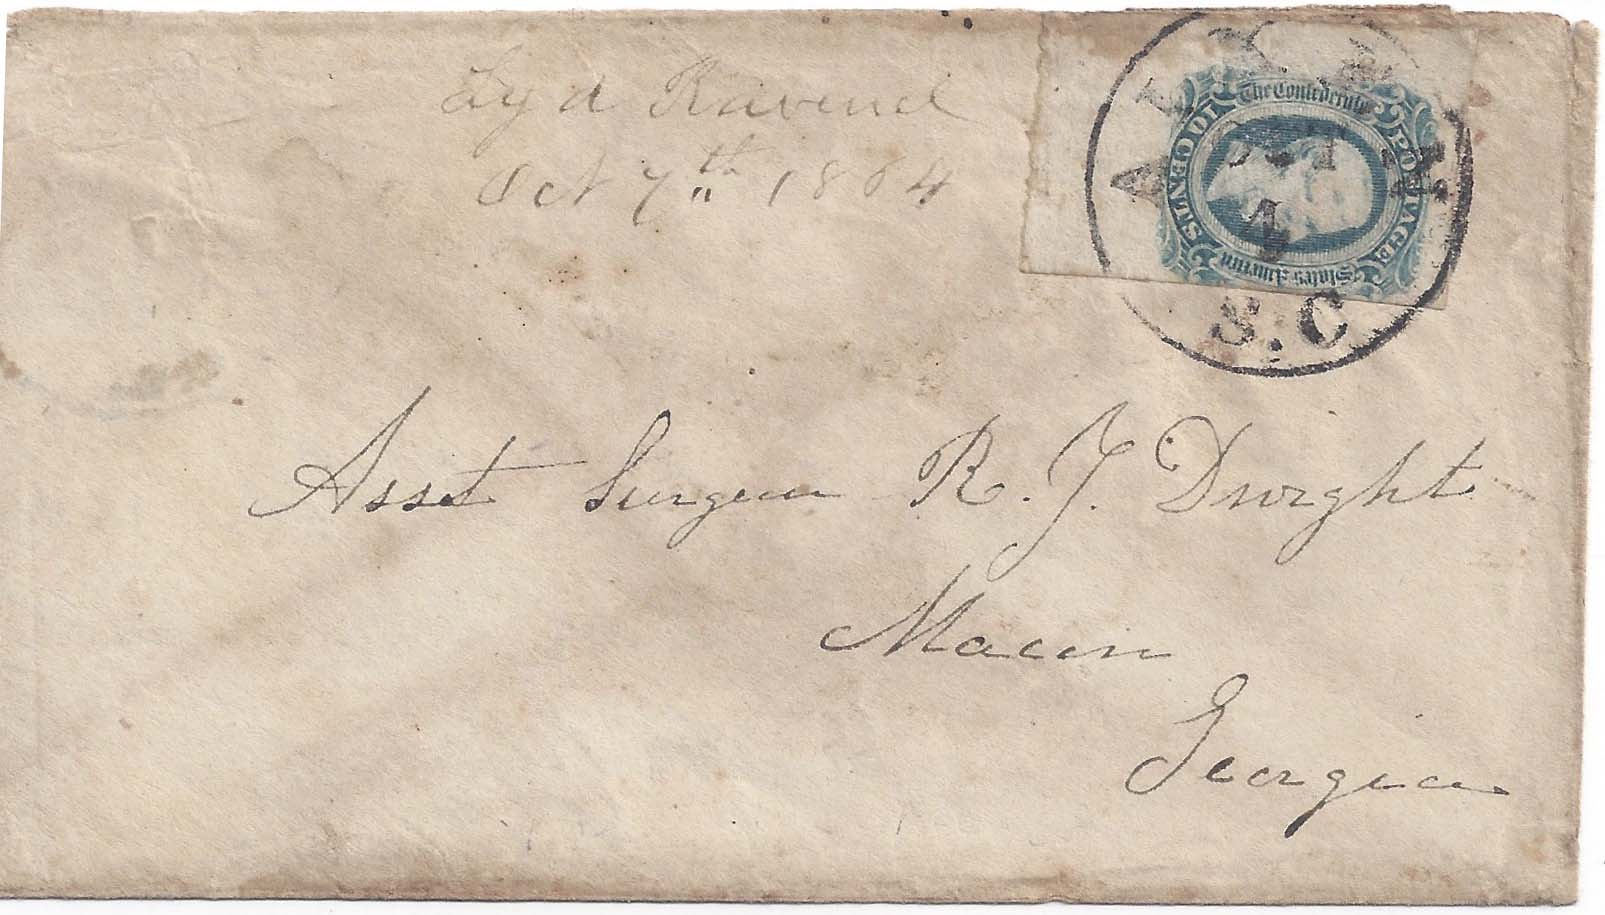 Lyd Ravenel
Oct 7th 1864
AIKEN
OCT
4
S.C
The Confederate
States America
POSTAGE
10 CENTS
Asst Surgeon R. J. Dwight
Macon
Georgia